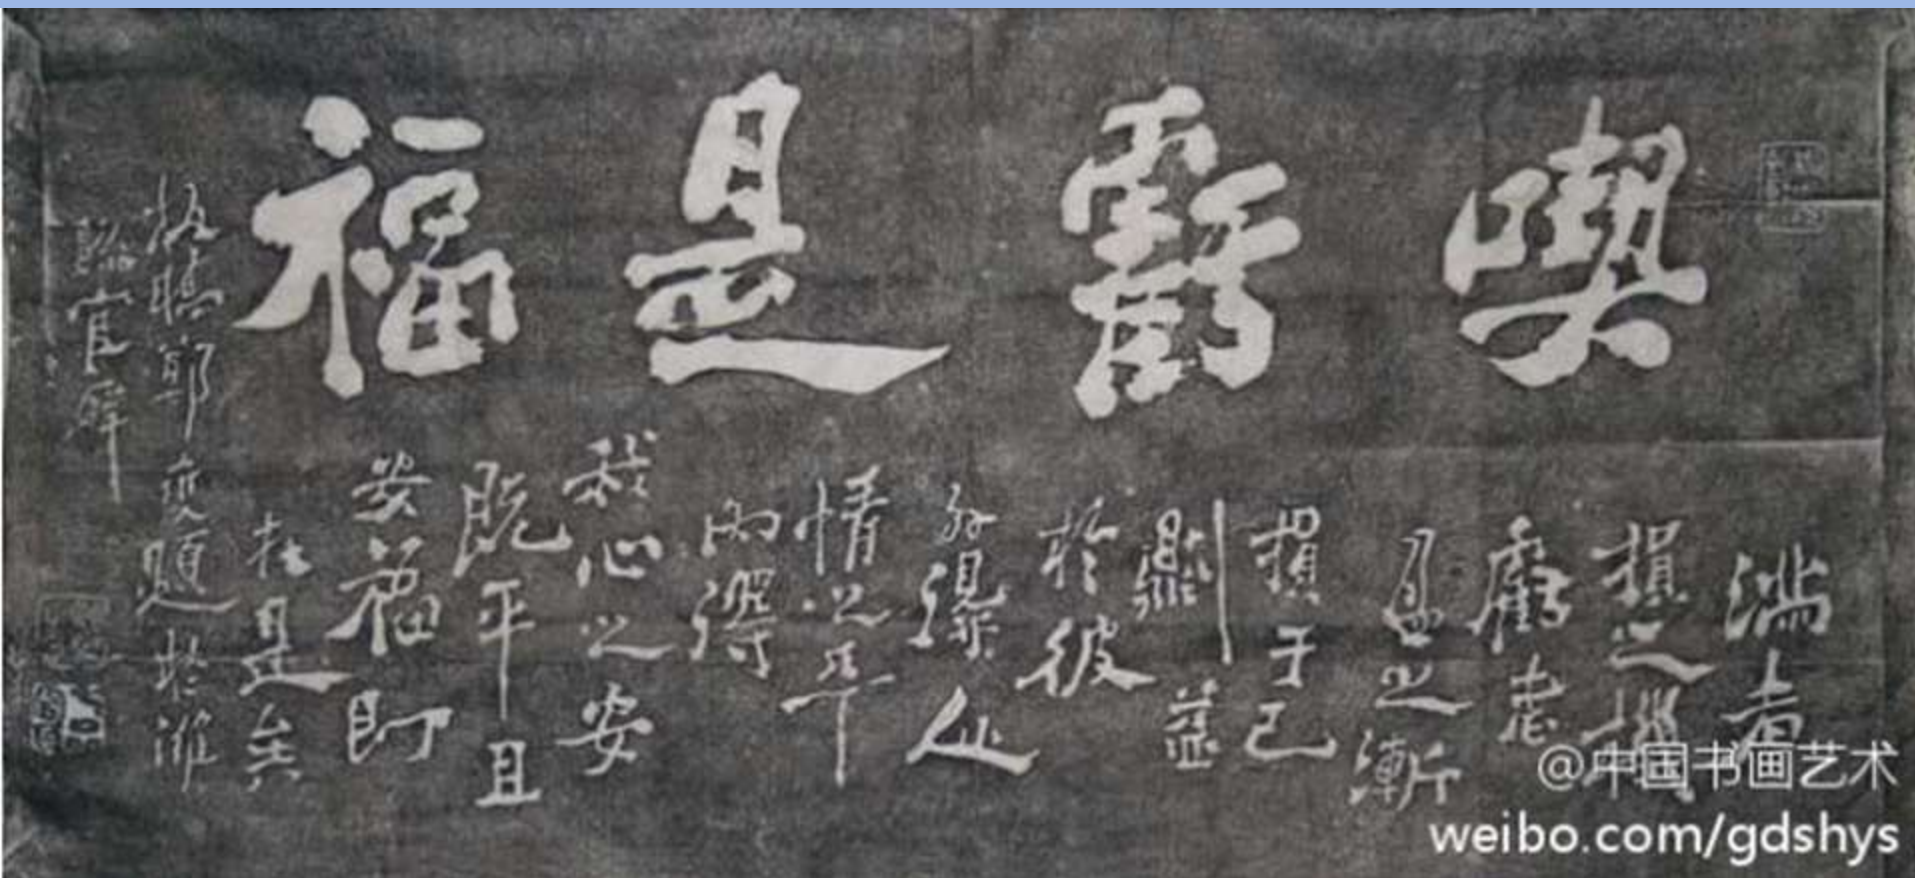 喫虧是福
滿者
損之機
虧者
盈之漸
損于己
則益
於彼
外得人
情之平
內得
我心之安
既平且
安福即
在是矣
板橋鄭燮題於濰
縣官廨
@中国书画艺术
weibo.com/gdshys